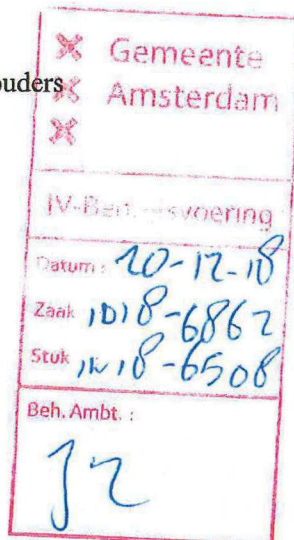 ouders
Gemeente
Amsterdam
IV-Bedrijfsvoering
Datum : 20-12-18
Zaak ID18-6862
Stuk IN18-6508
Beh. Ambt. :
JZ